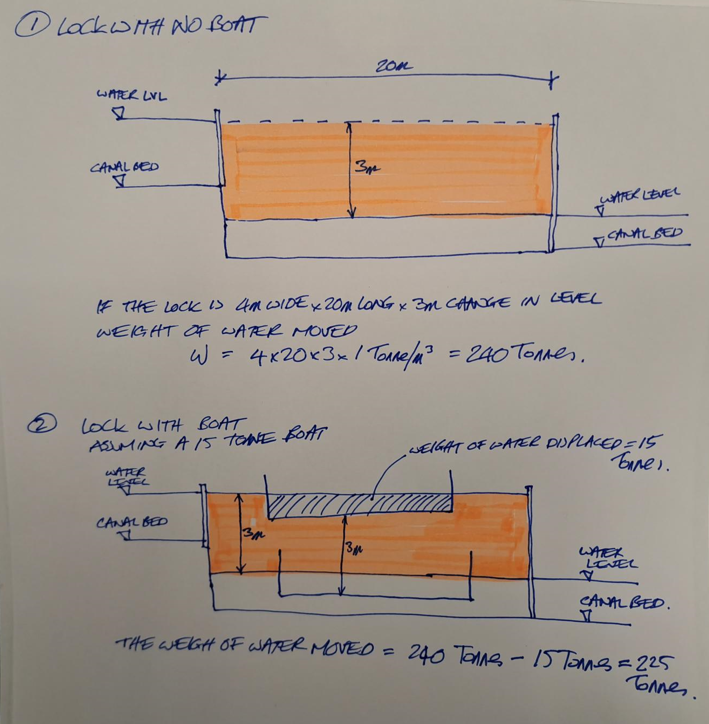 ① LOCK WITH NO BOAT
20m
WATER LVL
CANAL BED
3m
WATER LEVEL
CANAL BED
IF THE LOCK IS 4m WIDE x 20m LONG x 3m CANGE IN LEVEL
WEIGHT OF WATER MOVED
W = 4x20x3x1 Tonne/m³ = 240 Tonnes.
② LOCK WITH BOAT
ASUMING A 15 TONNE BOAT
WEIGHT OF WATER DISPLACED = 15
Tonnes.
WATER
LEVEL
CANAL BED
3m
3m
WATER
LEVEL
CANAL BED.
THE WEIGH OF WATER MOVED = 240 Tonnes - 15 Tonnes = 225
Tonnes.